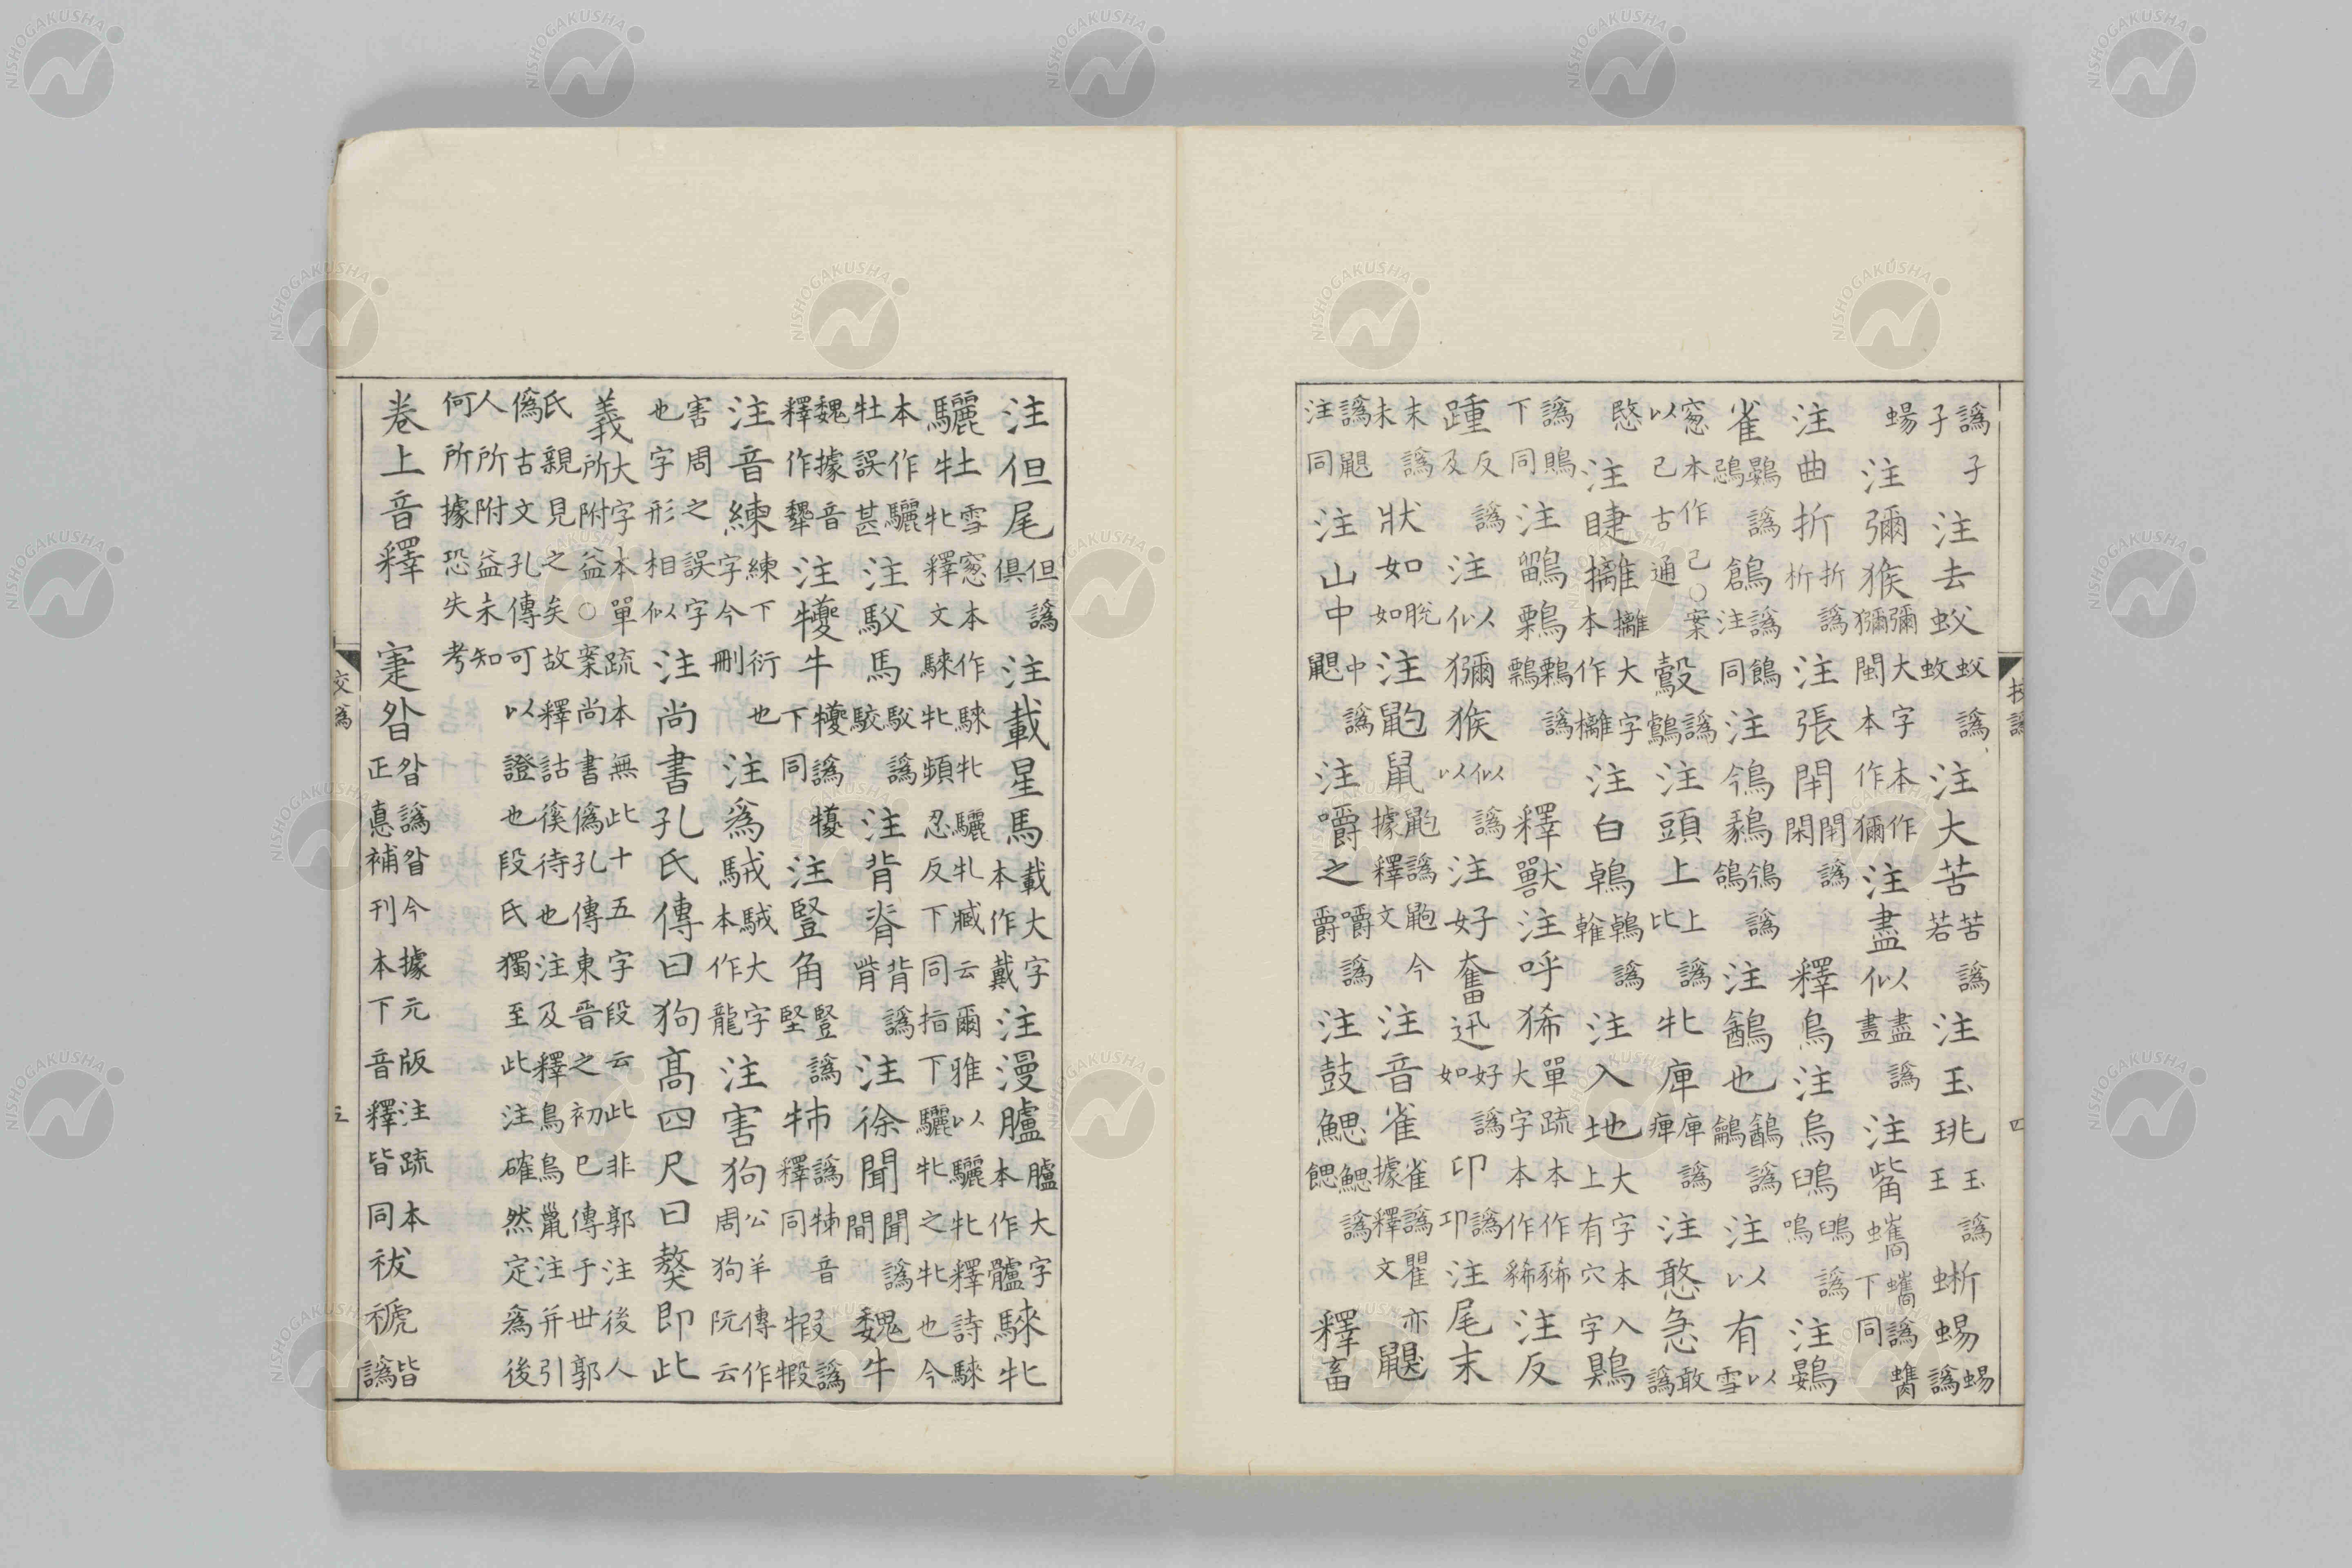 譌子子 注去蚥蚥譌蚊 注大苦苦譌若 注玉珧玉譌王 蜥蜴蜴譌
蜴 注彌猴彌大字本作獼閩本作獼 注盡似以盡譌晝 注觜蠵蠵譌下同
注曲折折譌析 注張閈閈譌閑 釋鳥 注烏鴟 注鷃
雀鷃譌 鶬譌注同 注也 注以有以雪
窓本作已○案以已古通 鷇譌 注頭上上譌比 牝庳庳譌痺 注憨急敢譌
愍 注睫攡攡大字本作 注白鶾 注入地大字本入上有穴字 鶪
譌鶪下同 注鶹鷅鷅譌 釋獸 注呼豨單疏本作豨大字本作 注反
踵反譌及 注似獼猴似譌以 注好奮迅好譌如 卬譌卭 注尾末
末譌未 狀如脫如 注鼩鼠據釋文今 注音雀雀譌瞿亦據釋文 鼳
譌鼳注同 注山中中譌鼳 注嚼之嚼譌爵 注鼓鰓鰓譌 釋畜
校譌 四
注但尾但譌俱 注載星馬載大字本作戴 注漫臚臚大字本作髗 騋牝
驪牡雪窓本作騋牝驪牝臧云爾雅以驪牝釋詩騋牝釋文騋牝頻忍反下同下驪牝之牝也今
本作驪牡誤甚 注駇馬駇譌駮 注背脊背譌 注徐聞聞譌間 魏牛
魏據音釋作犩 注犪牛犪譌下同 注豎角豎譌堅 音釋同 犌譌
注音練練下衍字今刪也 注為駥駥大字本作龍 注害狗公羊傳作周狗阮云
害周之誤字也字形相似 注尚書孔氏傳曰狗高四尺曰獒即此
義大字本單疏本無此十五字段云此非郭注後人所附益○案尚書僞孔傳東晉之初巳傳于世郭
氏親見之矣故釋詁徯待也注及釋鳥鳥鼠注并引僞古文孔傳可以證也段氏獨至此注確然定爲後
人所附益未知何所據恐失考
卷上音釋 寁昝昝譌昝今據元版注疏本正補刊本下音釋皆同 祓褫皆譌
交譌 五